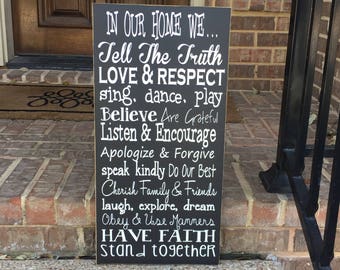 IN OUR HOME WE...
Tell The Truth
LOVE & RESPECT
sing, dance, play
Believe Are Grateful
Listen & Encourage
Apologize & Forgive
speak kindly Do Our Best
Cherish Family & Friends
laugh, explore, dream
Obey & Use Manners
HAVE FAITH
stand together